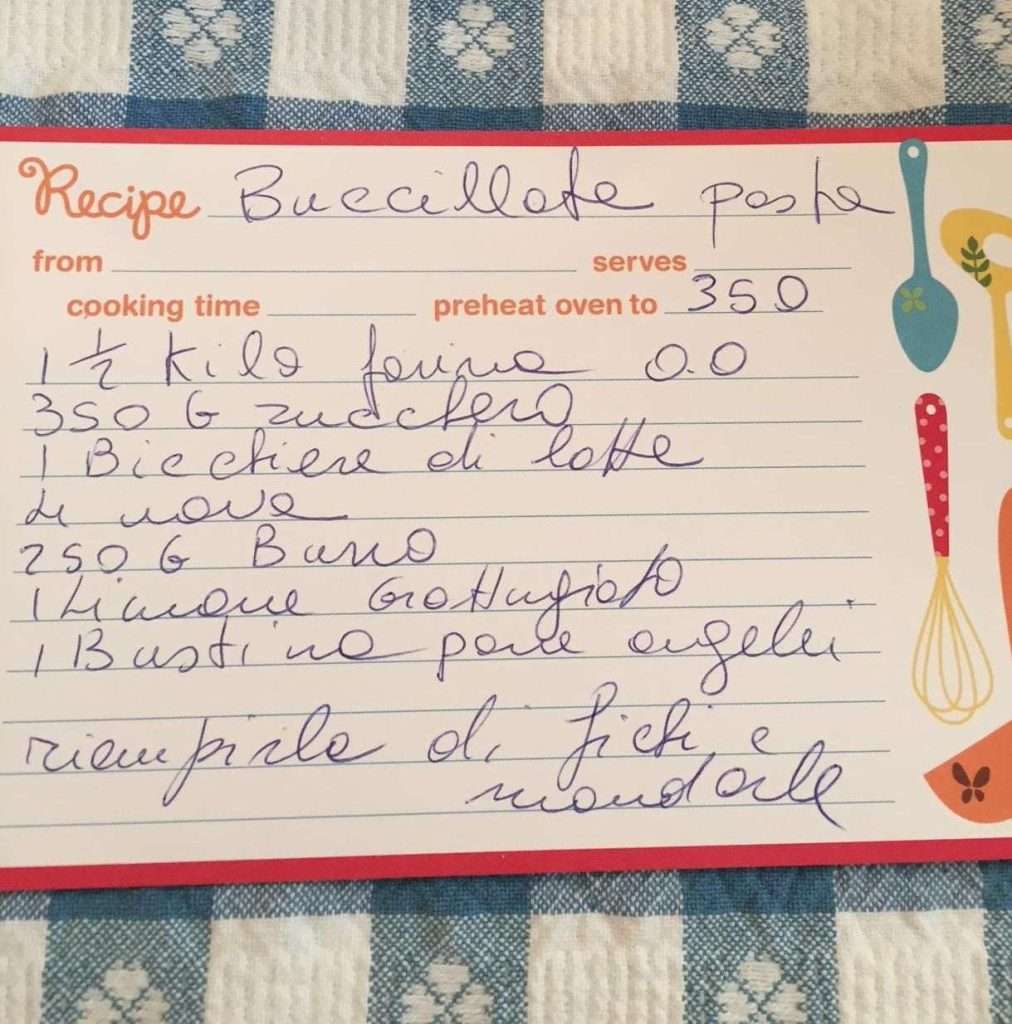 Recipe Buccillate pasta
from serves
cooking time preheat oven to 350
1 1/2 Kilo farina 0.0
350 G zucchero
1 Bicchiere di latte
4 uova
250 G Burro
1 Limone Grattugiato
1 Bustina pane angeli
riempirle di fichi e
mandorle